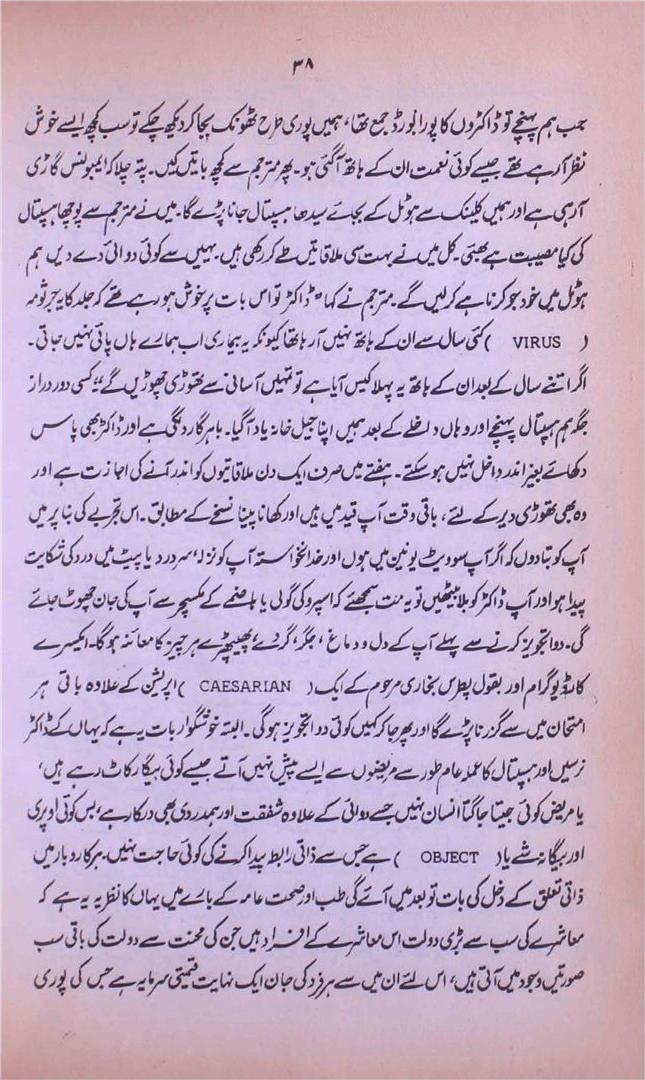 ۳۸
جب ہم پہنچے تو ڈاکٹروں کا پورا بورڈ جمع تھا، ہمیں پوری طرح ٹھونک بجا کر دیکھ چکے تو سب کچھ ایسے خوش
نظر آ رہے تھے جیسے کوئی نعمت ان کے ہاتھ آ گئی ہو۔ پھر مترجم سے کچھ باتیں کیں۔ پتہ چلا کہ ایمبولنس گاڑی
آ رہی ہے اور ہمیں کلینک سے ہوٹل کے بجائے سیدھا ہسپتال جانا پڑے گا۔ میں نے مترجم سے پوچھا ہسپتال
کی کیا مصیبت ہے بھئی۔ کل میں نے بہت سی ملاقاتیں طے کر رکھی ہیں۔ یہیں سے کوئی دوائی دے دیں ہم
ہوٹل میں خود جو کرنا ہے کر لیں گے۔ مترجم نے کہا "ڈاکٹر تو اس بات پر خوش ہو رہے تھے کہ جلد کا یہ جرثومہ
( VIRUS ) کئی سال سے ان کے ہاتھ نہیں آ رہا تھا کیونکہ یہ بیماری اب ہمارے ہاں پائی نہیں جاتی۔
اگر اتنے سال کے بعد ان کے ہاتھ یہ پہلا کیس آیا ہے تو تمہیں آسانی سے تھوڑی چھوڑیں گے" کسی دور دراز
جگہ ہم ہسپتال پہنچے اور وہاں داخلے کے بعد ہمیں اپنا جیل خانہ یاد آ گیا۔ باہر گارد لگی ہے اور ڈاکٹر بھی پاس
دکھائے بغیر اندر داخل نہیں ہو سکتے۔ ہفتے میں صرف ایک دن ملاقاتیوں کو اندر آنے کی اجازت ہے اور
وہ بھی تھوڑی دیر کے لئے، باقی وقت آپ قید میں ہیں اور کھانا پینا نسخے کے مطابق۔ اس تجربے کی بنا پر میں
آپ کو بتا دوں کہ اگر آپ سوویٹ یونین میں ہوں اور خدانخواستہ آپ کو نزلہ، سردرد یا پیٹ میں درد کی شکایت
پیدا ہو اور آپ ڈاکٹر کو بلا بیٹھیں تو یہ مت سمجھئے کہ اسپرو کی گولی یا ہاضمے کے مکسچر سے آپ کی جان چھوٹ جائے
گی۔ دوا تجویز کرنے سے پہلے آپ کے دل و دماغ، جگر، گردے، پھیپھڑے ہر چیز کا معائنہ ہو گا۔ ایکسرے
کارڈیوگرام اور بقول پطرس بخاری مرحوم کے ایک ( CAESARIAN ) اپریشن کے علاوہ باقی ہر
امتحان میں سے گزرنا پڑے گا اور پھر جا کر کہیں کوئی دوا تجویز ہو گی۔ البتہ خوشگوار بات یہ ہے کہ یہاں کے ڈاکٹر
نرسیں اور ہسپتال کا عملہ عام طور سے مریضوں سے ایسے پیش نہیں آتے جیسے کوئی بیگار کاٹ رہے ہیں،
یا مریض کوئی جیتا جاگتا انسان نہیں جسے دوائی کے علاوہ شفقت اور ہمدردی بھی درکار ہے، بس کوئی اوپری
اور بیگانہ شے یا ( OBJECT ) ہے جس سے ذاتی رابطہ پیدا کرنے کی کوئی حاجت نہیں، ہر کاروبار میں
ذاتی تعلق کے دخل کی بات تو بعد میں آئے گی طب اور صحت عامہ کے بارے میں یہاں کا نظریہ یہ ہے کہ
معاشرے کی سب سے بڑی دولت اس معاشرے کے افراد ہیں جن کی محنت سے دولت کی باقی سب
صورتیں وجود میں آتی ہیں، اس لئے ان میں سے ہر فرد کی جان ایک نہایت قیمتی سرمایہ ہے جس کی پوری